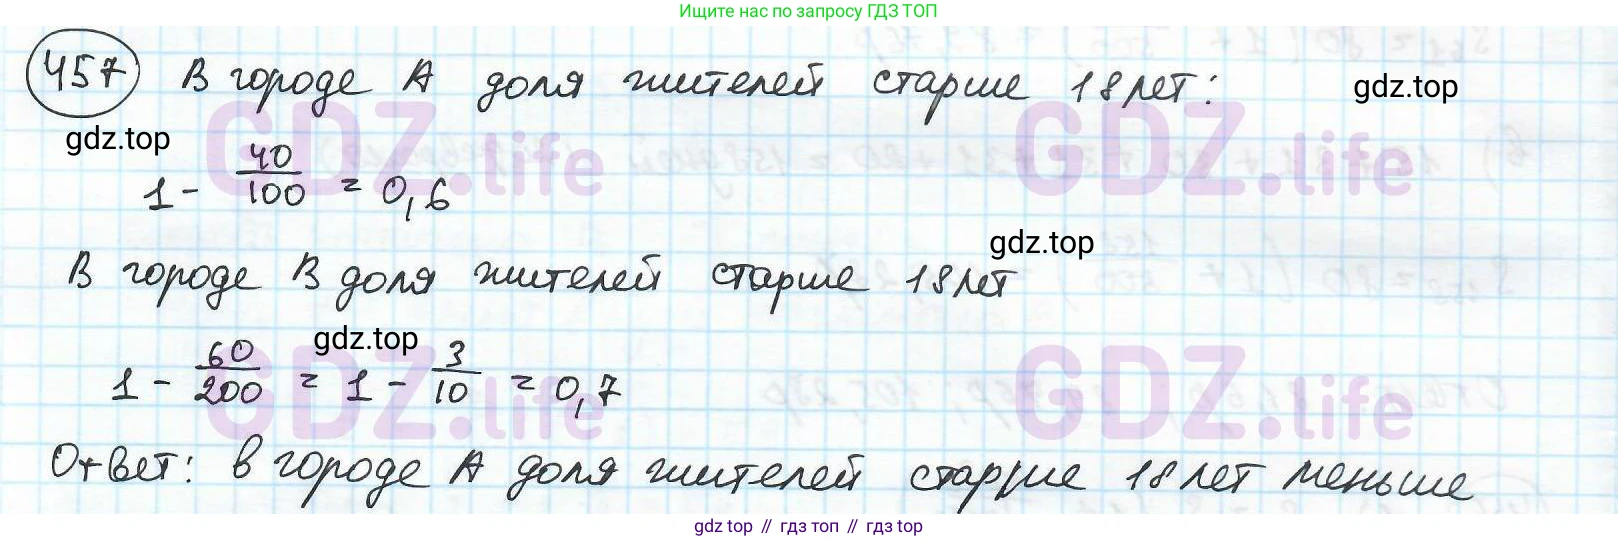 Ищите нас по запросу ГДЗ ТОП
457 В городе А доля жителей старше 18 лет:
gdz.top
gdz.top
GDZ.life GDZ.life
1 - 40/100 = 0,6
gdz.top
В городе В доля жителей старше 18 лет
gdz.top
1 - 60/200 = 1 - 3/10 = 0,7
GDZ.life GDZ.life
Ответ: в городе А доля жителей старше 18 лет меньше
gdz top // гдз топ // гдз top